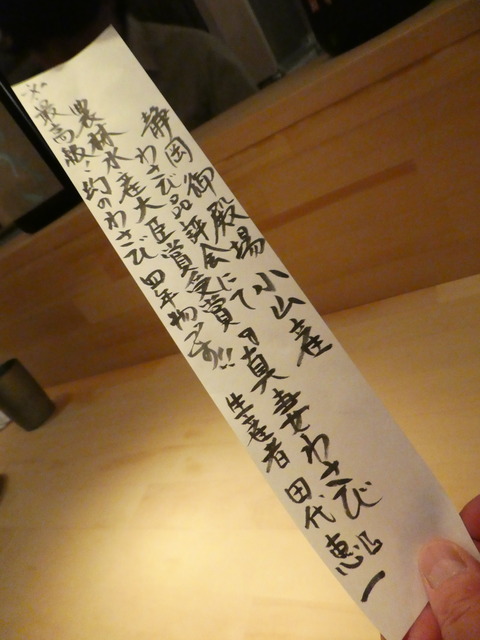 静岡御殿場小山産
わさび品評会にて『真妻わさび』
農林水産大臣賞受賞 生産者 田代恵一
※最高級・幻のわさび 四年物です!!